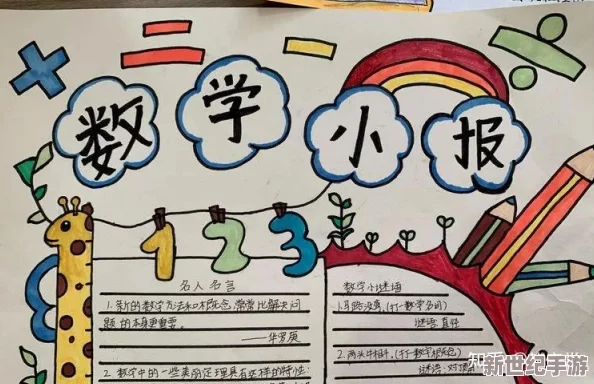 数学小报
123
名人名言
1.新的数学方法和概念,常常比解决问
题的本身更重要。
——华罗庚
2.数学中的一些美丽定理具有这样的特性:
数学小谜语
1.马路没弯。(打一数学名词)
谜语:直径
2.两头牛相斗。(打一数学
谜语:对顶
新世纪手游